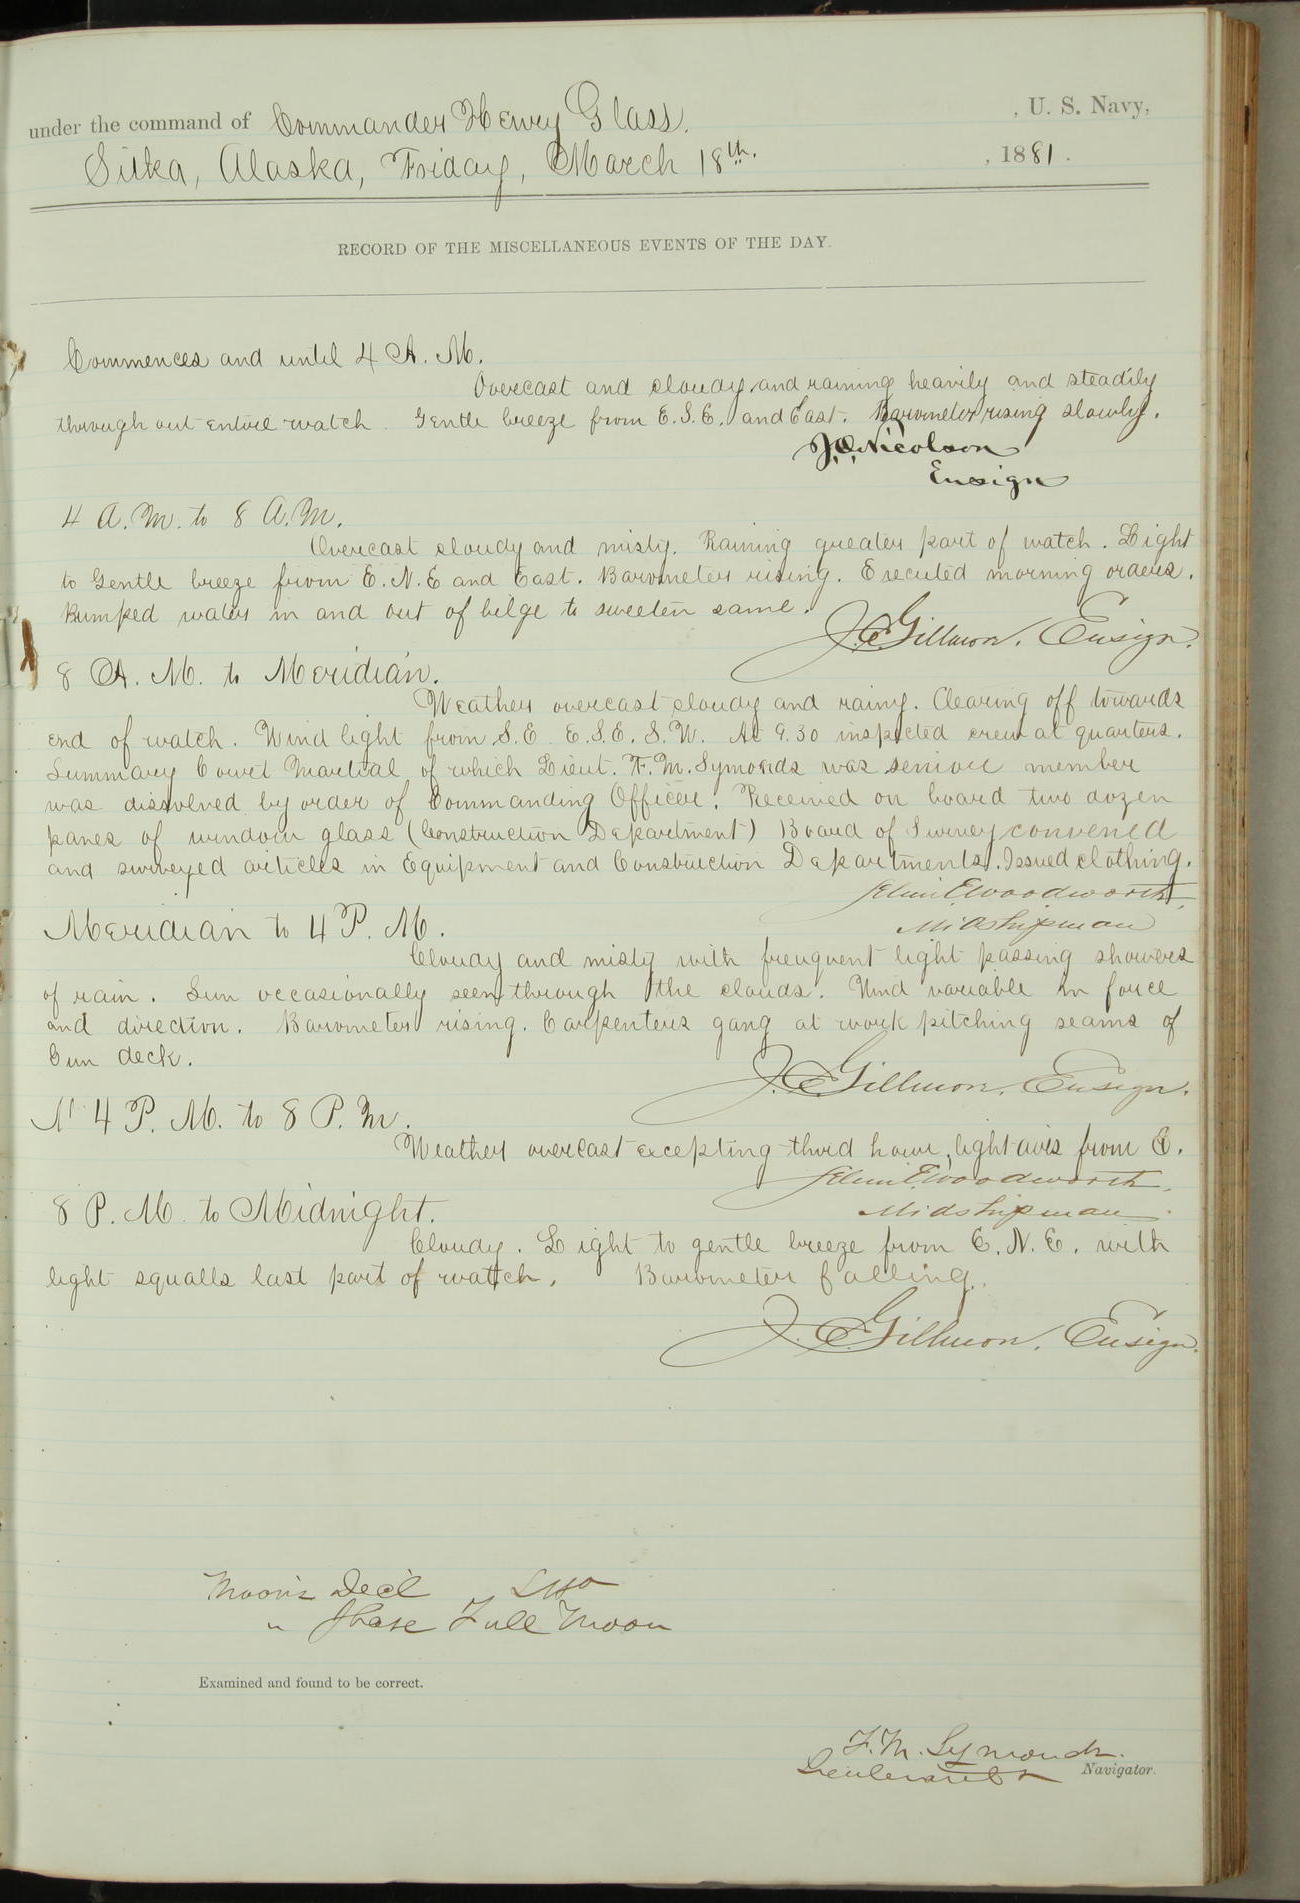 under the command of Commander Henry Glass. , U. S. Navy,
Sitka, Alaska, Friday, March 18th. , 1881.
RECORD OF THE MISCELLANEOUS EVENTS OF THE DAY.
Commences and until 4 A. M.
Overcast and cloudy and raining heavily and steadily
through out entire watch. Gentle breeze from E.S.E. and East. Barometer rising slowly.
J.O. Nicolson
Ensign
4 A.M. to 8 A.M.
Overcast cloudy and misty. Raining greater part of watch. Light
to Gentle breeze from E.N.E and East. Barometer rising. Executed morning orders.
Pumped water in and out of bilge to sweeten same.
J.C. Gillmor. Ensign.
8 A. M. to Meridian.
Weather overcast cloudy and rainy. Clearing off towards
end of watch. Wind light from S.E. E.S.E. S.W. At 9.30 inspected crew at quarters.
Summary Court Martial of which Lieut. F.M. Symonds was senior member
was dissolved by order of Commanding Officer. Received on board two dozen
panes of window glass (Construction Department) Board of Survey convened
and surveyed articles in Equipment and Construction Departments. Issued clothing.
Selim E. Woodworth,
Midshipman
Meridian to 4 P. M.
Cloudy and misty with frenquent light passing showers
of rain. Sun occasionally seen through the clouds. Wind variable in force
and direction. Barometer rising. Carpenters gang at work pitching seams of
Gun deck.
J.C. Gillmor. Ensign.
4 P. M. to 8 P. M.
Weather overcast excepting third hour, light airs from E.
Selim E. Woodworth,
Midshipman.
8 P. M. to Midnight.
Cloudy. Light to gentle breeze from E. N. E. with
light squalls last part of watch. Barometer falling.
J. C. Gillmor. Ensign.
Moon's Decl
" Phase Full Moon
Examined and found to be correct.
F. M. Symonds.
Lieutenant & Navigator.